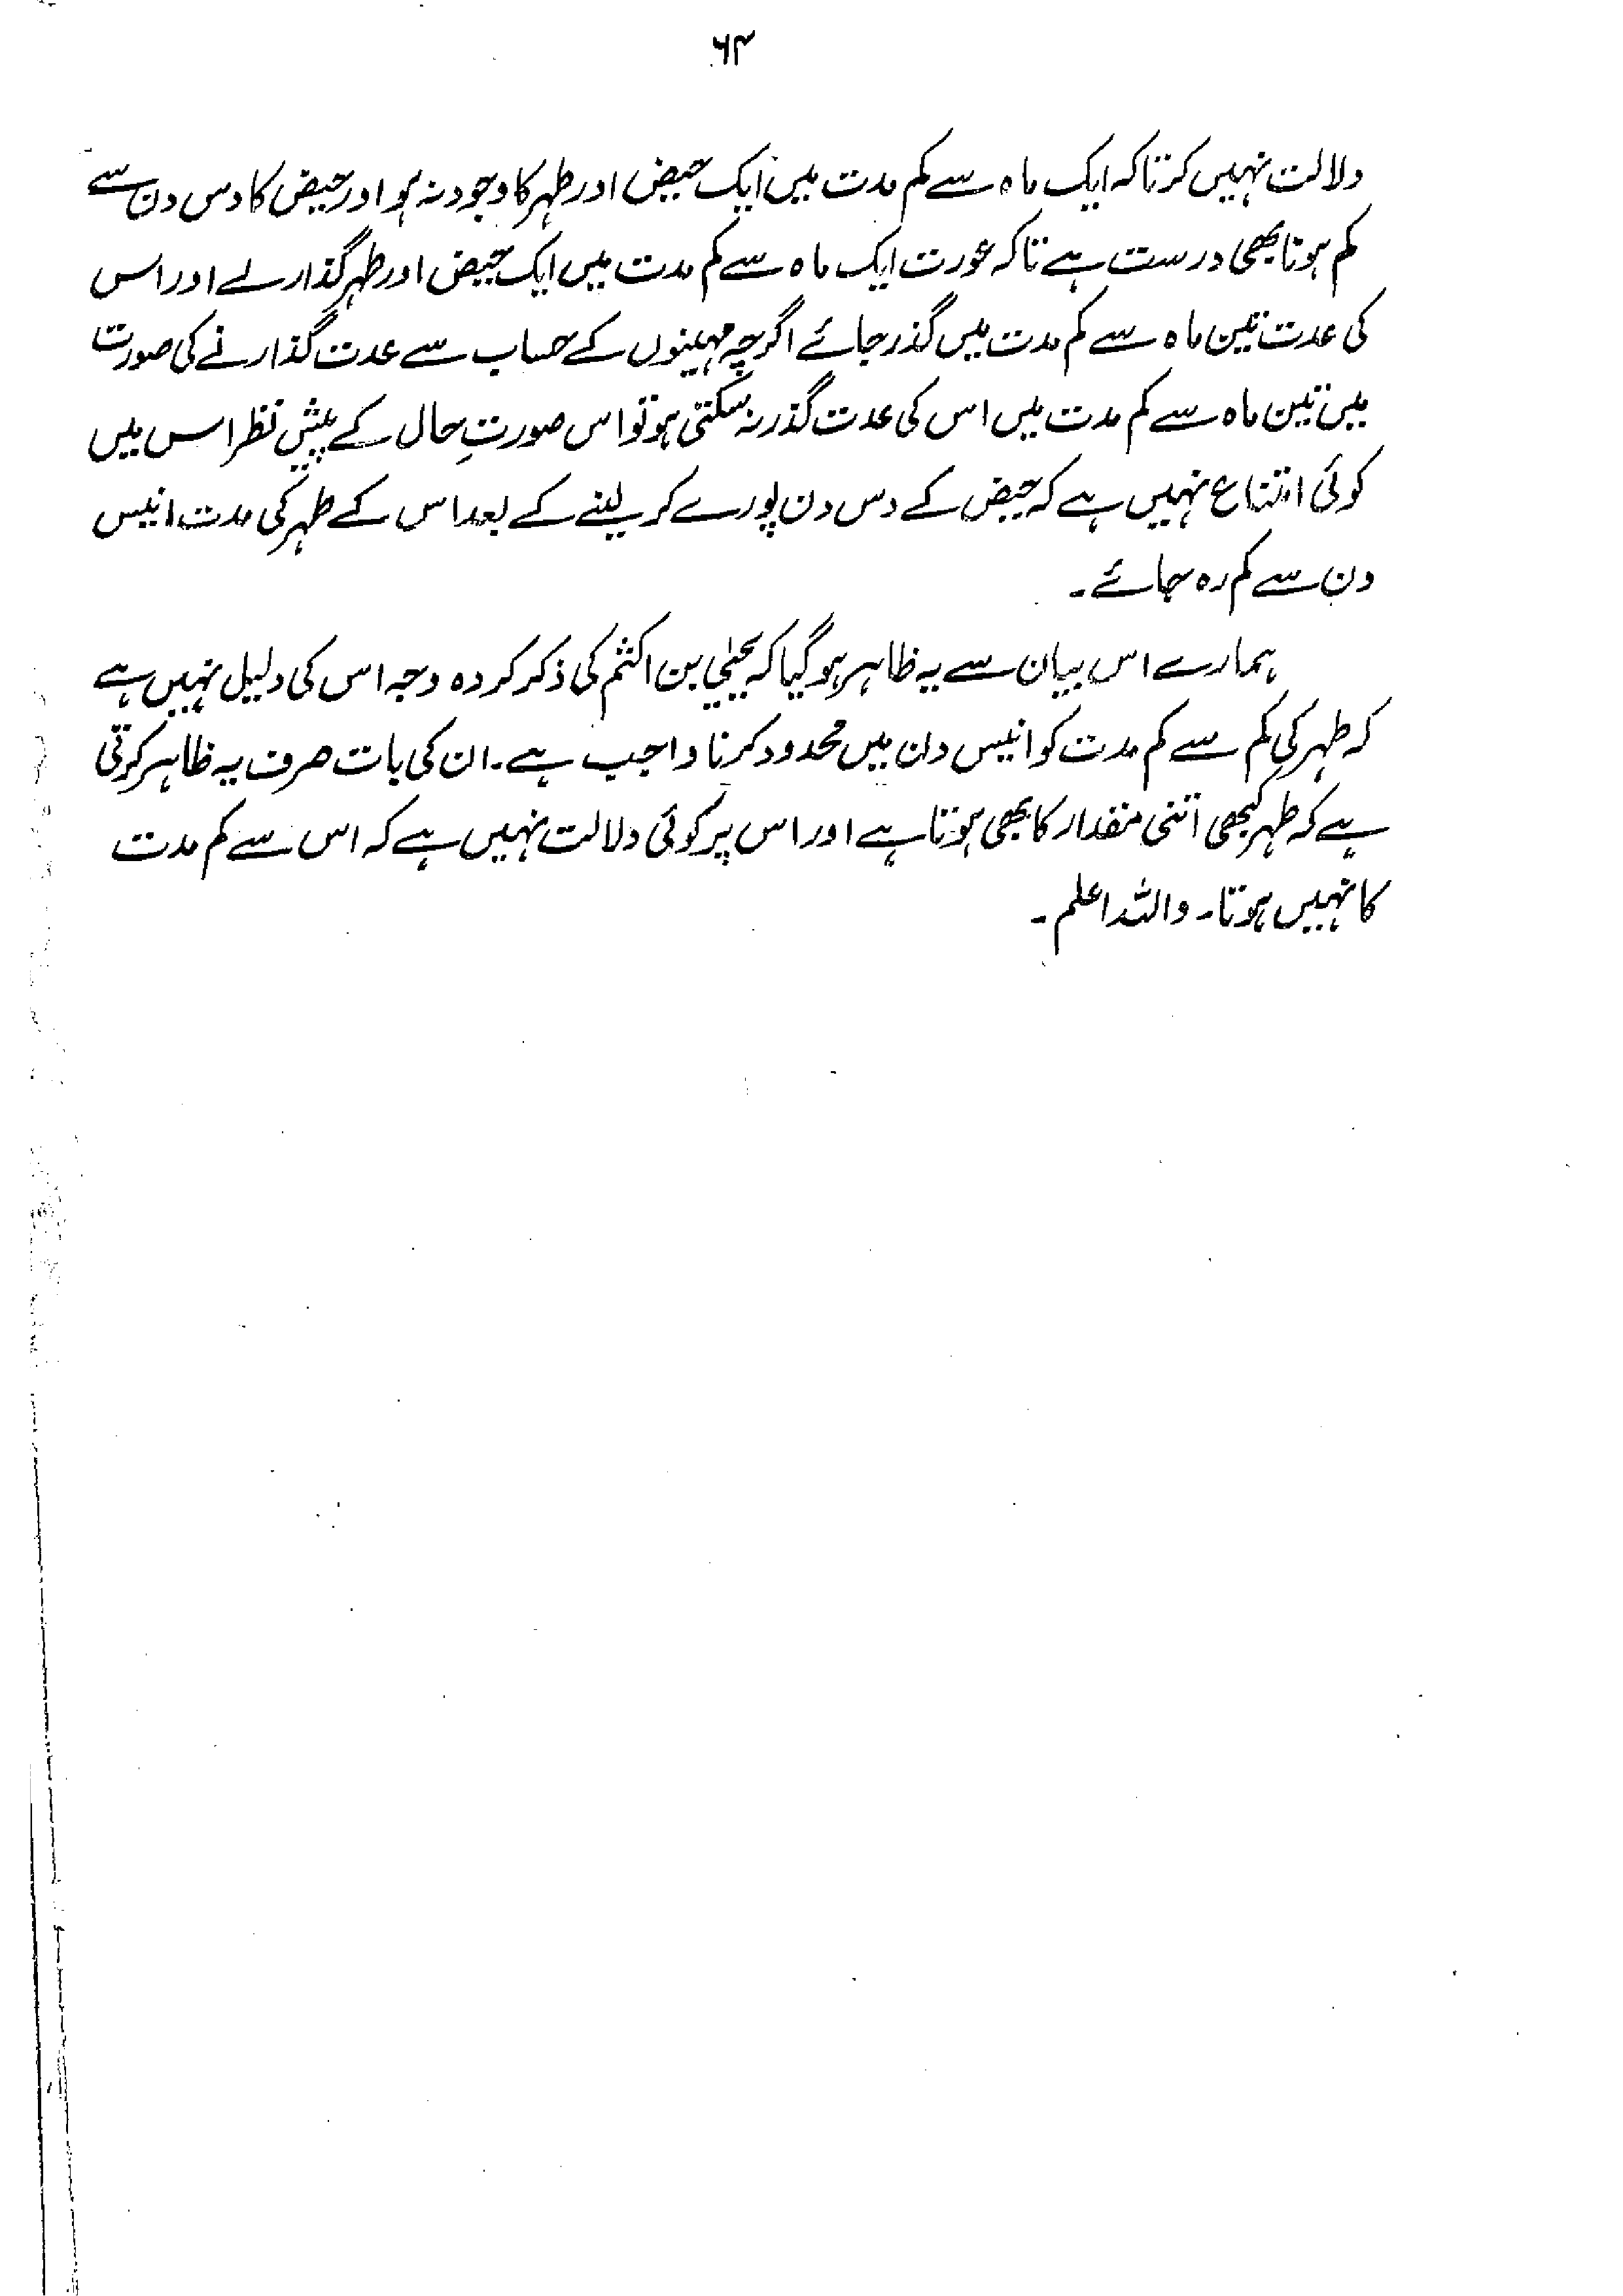 ۶۴
دلالت نہیں کرتا کہ ایک ماہ سے کم مدت میں ایک حیض اور طہر کا وجود نہ ہو اور حیض کا دس دن سے
کم ہونا بھی درست ہے تاکہ عورت ایک ماہ سے کم مدت میں ایک حیض اور طہر گذار لے اور اس
کی عدت تین ماہ سے کم مدت میں گذر جائے اگرچہ مہینوں کے حساب سے عدت گذارنے کی صورت
میں تین ماہ سے کم مدت میں اس کی عدت گذر نہ سکتی ہو تو اس صورتِ حال کے پیش نظر اس میں
کوئی امتناع نہیں ہے کہ حیض کے دس دن پورے کر لینے کے بعد اس کے طہر کی مدت انیس
دن سے کم رہ جائے۔
ہمارے اس بیان سے یہ ظاہر ہو گیا کہ یحییٰ بن اکثم کی ذکر کردہ وجہ اس کی دلیل نہیں ہے
کہ طہر کی کم سے کم مدت کو انیس دن میں محدود کرنا واجب ہے۔ ان کی بات صرف یہ ظاہر کرتی
ہے کہ طہر کبھی اتنی مقدار کا بھی ہوتا ہے اور اس پر کوئی دلالت نہیں ہے کہ اس سے کم مدت
کا نہیں ہوتا۔ واللہ اعلم۔